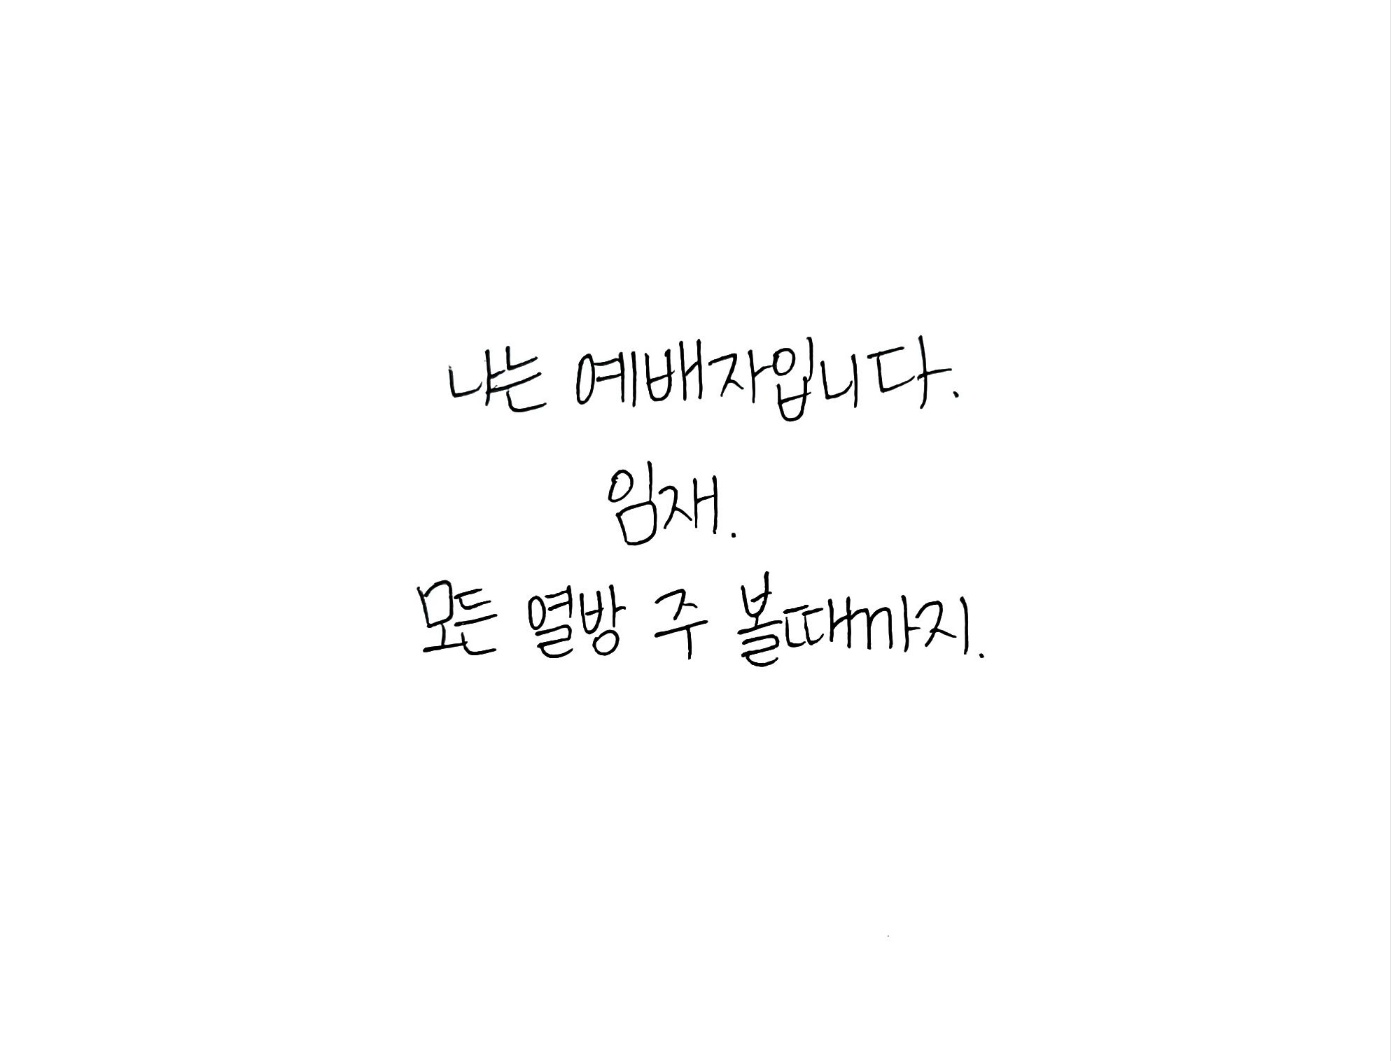 나는 예배자입니다.
임재.
모든 열방 주 볼때까지.